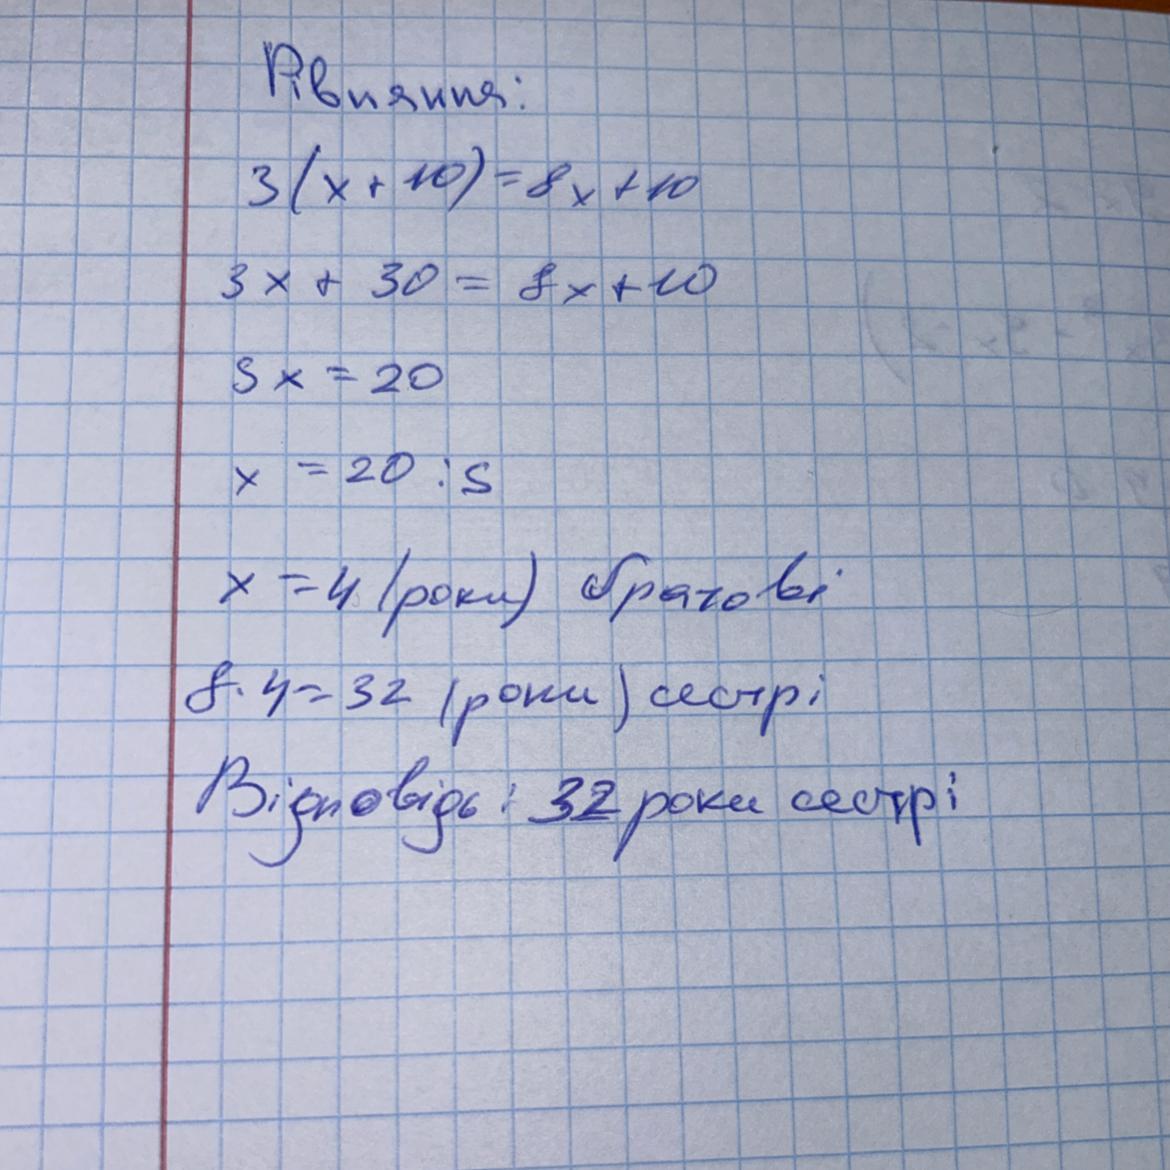 Рівняння:
3(x+10)=8x+10
3x+30=8x+10
5x=20
x=20:5
x=4(роки) братові
8·4=32 (роки) сестрі
Відповідь: 32 роки сестрі